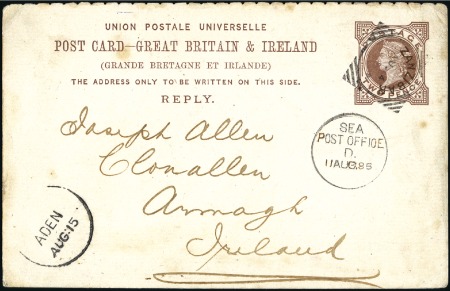 UNION POSTALE UNIVERSELLE
POST CARD—GREAT BRITAIN & IRELAND
(GRANDE BRETAGNE ET IRLANDE)
THE ADDRESS ONLY TO BE WRITTEN ON THIS SIDE.
REPLY.
Joseph Allen
Clonallen
Armagh
Ireland
SEA
POST OFFICE
D.
11 AUG.85
ADEN
AUG:15